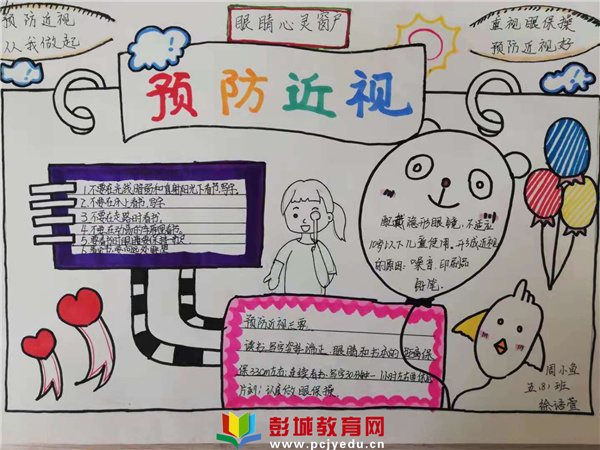 预防近视
从我做起
眼睛心灵窗户
重视眼保操
预防近视好
预防近视
1.不要在光线暗弱和直射阳光下看书写字。
2.不要在床上看书、写字
3.不要在走路时看书。
4.不要在动荡的车厢里看书。
配戴隐形眼镜,不适应
10岁以下儿童使用。形成近视
的原因:噪音、印刷品
铅笔。
预防近视三要
读书、写字姿势端正、眼睛和书本的距离保
保33cm左右,连续看书、写字30分钟—1小时左右
片刻;认真做眼保操
周小
五(8)班
徐语萱
彭城教育网
www.pcjyedu.cn